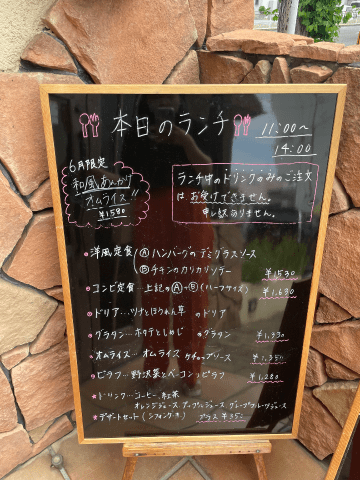 本日のランチ
11:00～
14:00
6月限定
和風あんかけ
オムライス!!
¥1580
ランチ中のドリンクのみのご注文
は お受けできません。
申し訳ありません。
洋風定食 Ⓐハンバーグのデミグラスソース
Ⓑチキンのカリカリソテー ¥1530
コンビ定食…上記のⒶとⒷ(ハーフサイズ) ¥1,630
ドリア…ツナとほうれん草のドリア
グラタン…ホタテとしめじのグラタン ¥1,330
オムライス…オムライス ソース
ピラフ…野沢菜とベーコンのピラフ ¥1,280
ドリンク…コーヒー、紅茶
オレンジジュース アップルジュース グレープフルーツジュース
デザートセット(シフォンケーキ) プラス ¥350